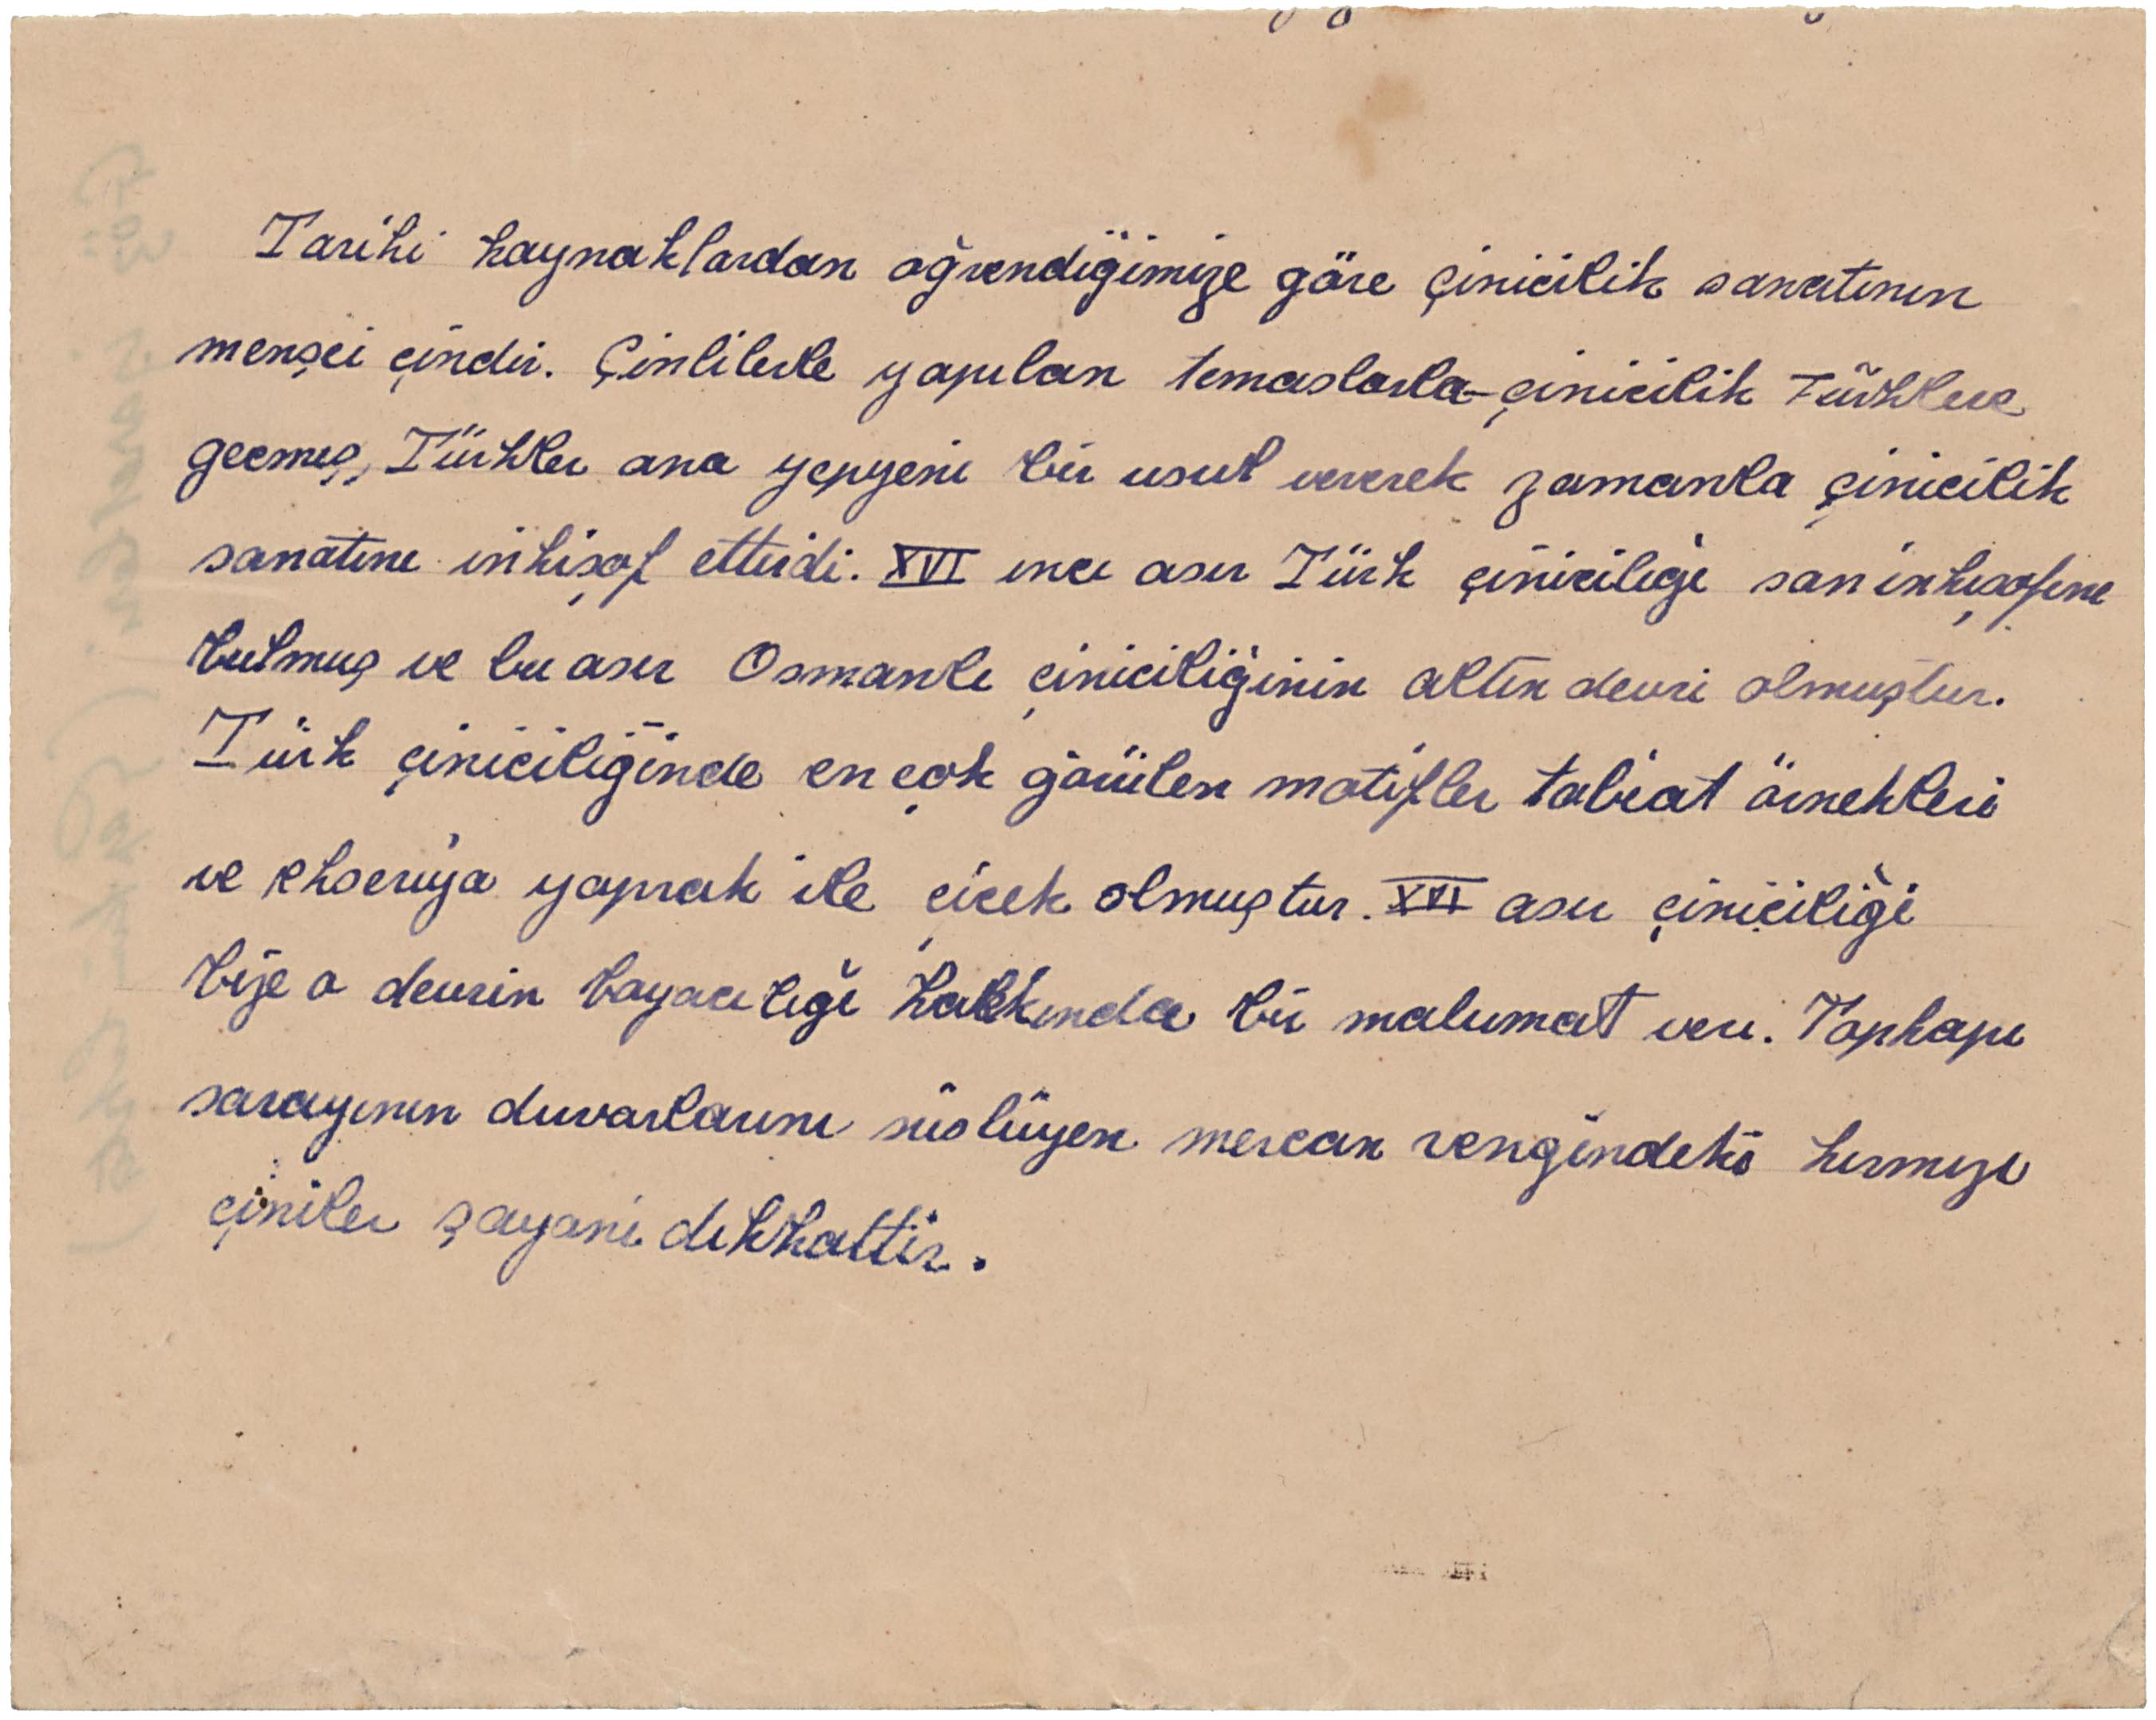 Tarihi kaynaklardan öğrendiğimize göre çinicilik sanatının
menşei çindir. Çinlilerle yapılan temaslarla-çinicilik Türklere
geçmiş, Türkler ona yepyeni bir usul vererek zamanla çinicilik
sanatını inkişaf ettirdi. XVI ıncı asır Türk çiniciliği son inkişafını
bulmuş ve bu asır Osmanlı çiniciliğinin altın devri olmuştur.
Türk çiniciliğinde en çok görülen motifler tabiat örnekleri
ve ekseriya yaprak ile çiçek olmuştur. XVI asır çiniciliği
bize o devrin boyacılığı hakkında bir malumat verir. Topkapı
sarayının duvarlarını süslüyen mercan rengindeki kırmızı
çiniler şayanı dikkattir.